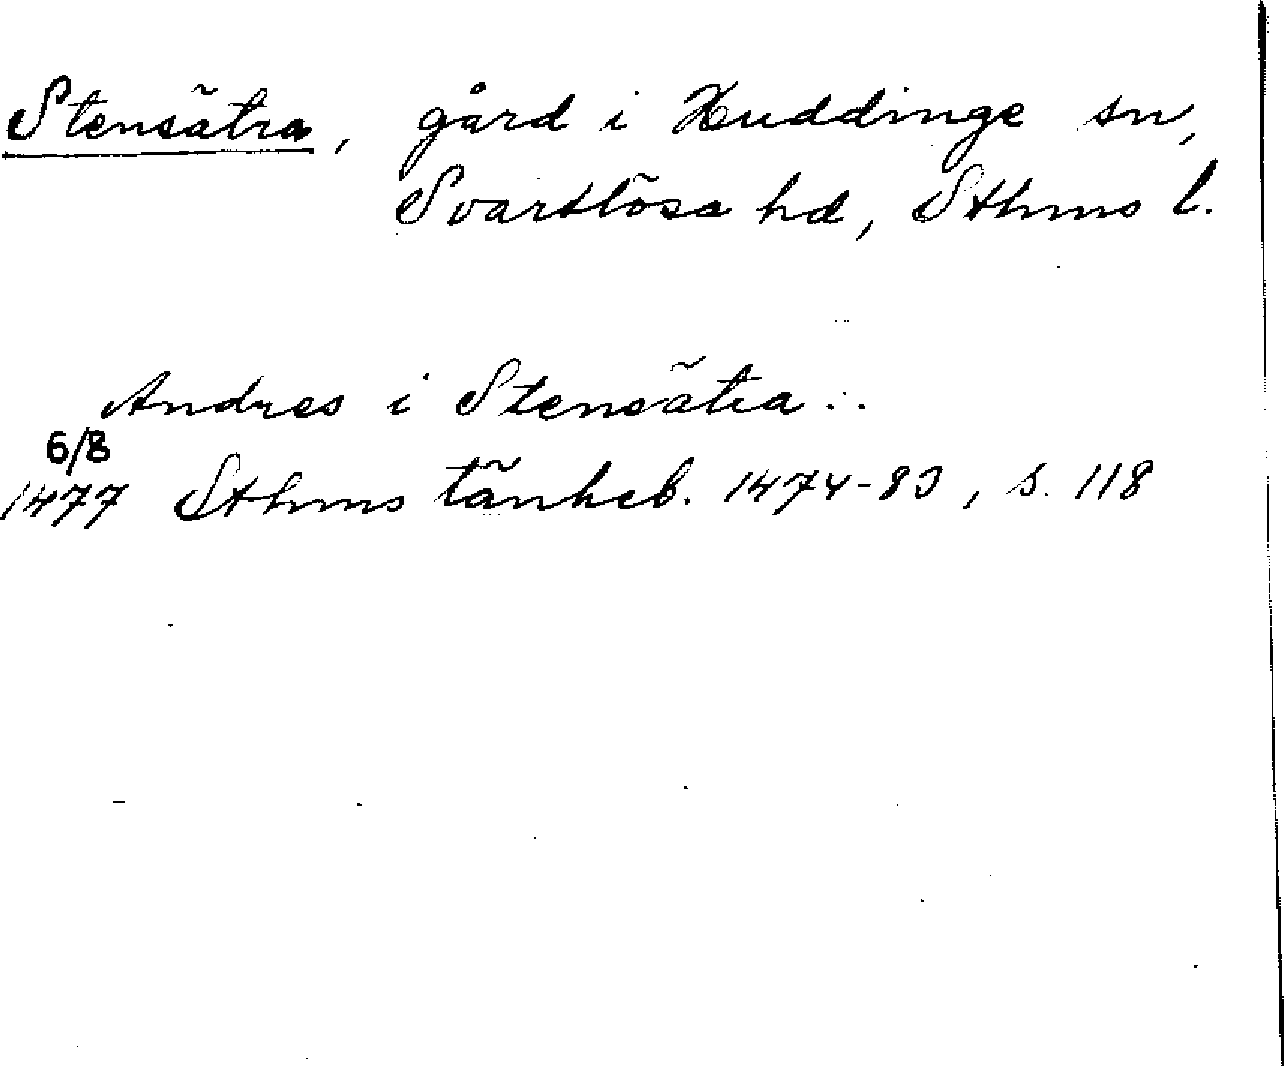 Stensätra, gård i Huddinge sn,
Svartlösa hd, Sthms l.
Andres i Stensätra ..
6/8
1477 Sthms tänkeb. 1474-83, s. 118